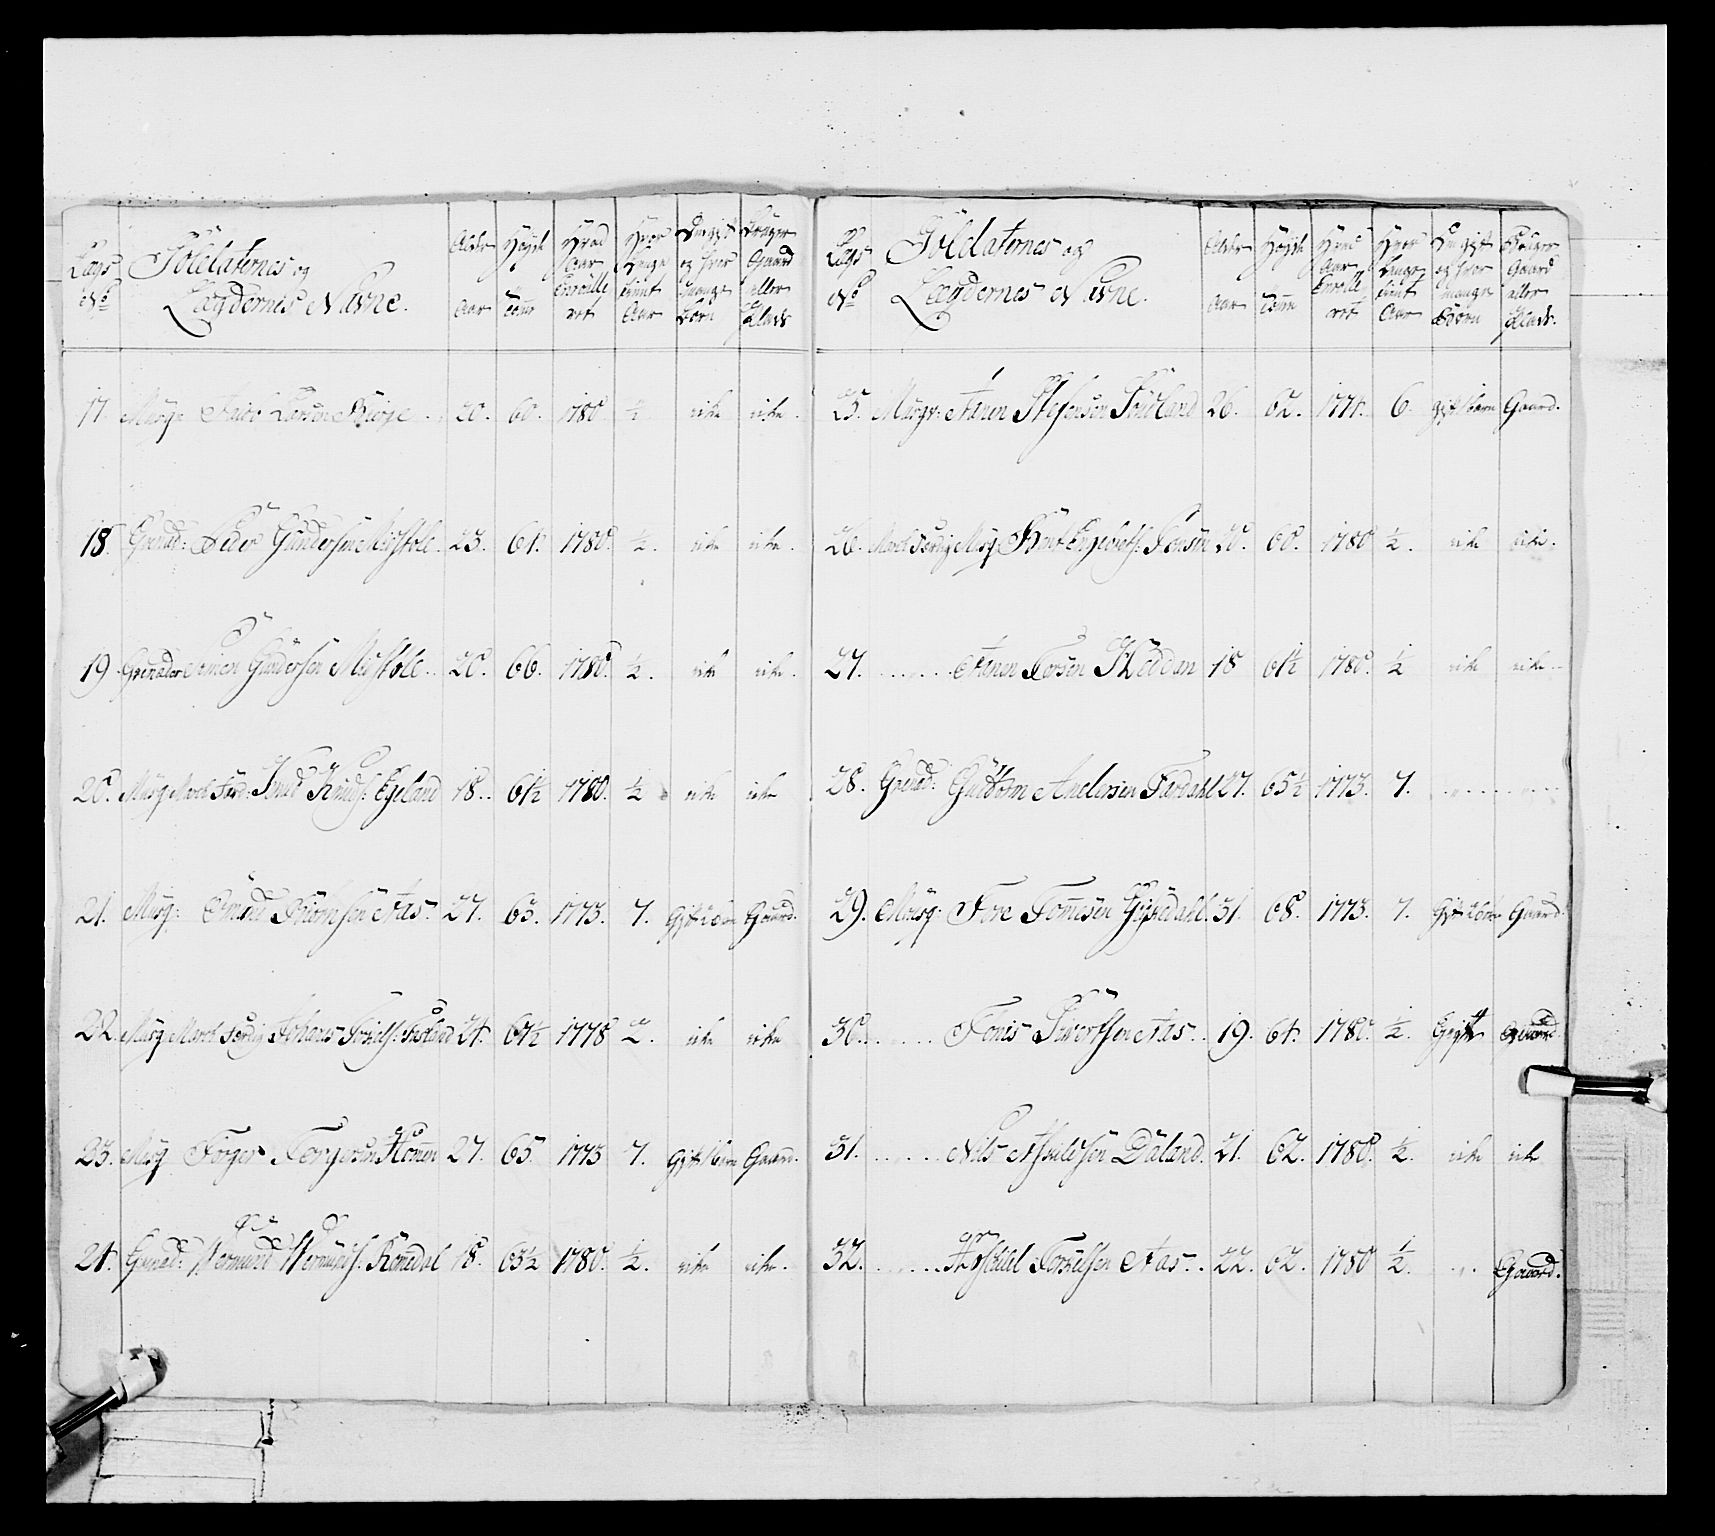 Lægs No
Soldaternes og Lægdernes Navne.
Alder Aar
Højde Tomme
Hvad Aar Enroulleret
Hvor Længe tient Aar
Om gift og hvor mange Børn
Bruger Gaard eller Plads
17. Musqr Lars Larsen Berge. 20. 60. 1780 ½ icke icke.
18. Grenad: Peder Gundersen Mushole. 23. 64. 1780. ½. icke icke.
19. Grenader Simen Gundersen Mushole. 20. 66. 1780. ½. icke icke.
20. Musq March Færd: Knud Knuds: Egeland 18. 61½ 1780. ½ icke icke
21. Musq: Omund Biörnsen Aas. 27. 63. 1773. 7. Gift 2 børn Gaard.
22. March Færdig Johans 24. 61½ 1778 2. icke icke
23. Musq Törger Torgersen Homen 27. 65 1773 7. Gift 1 børn Gaard.
24. Grenad: Wermund Wermunds: Römedal 18. 63½ 1780. ½. icke icke.
Lægs No
Soldaternes og Lægdernes Navne.
Alder Aar
Højde Tomme
Hvad Aar Enroulleret
Hvor Længe tient Aar
Om gift og hvor mange Børn
Bruger Gaard eller Plads.
25. Musqr: Aanen Stephensen Sodland 26. 62. 1774. 6. gift 1 børn Gaard.
26. March Færdig Musq: Knud Engebrets: 20. 60. 1780 ½. icke icke.
27. Aanen Torsen Hodden 18 61½ 1780. ½ icke icke
28. Grenad: Guttorm Andersen Fardahl 27. 65½ 1773. 7.
29. Musq: Tore Tommesen Gysedahl. 31. 68. 1773. 7. Gift 2 børn Gaard
30. Tönis Siwertsen Aas. 19. 64. 1780. ½. Gift Gaard.
31. Nils Aschildsen Daland. 21. 62. 1780. ½. icke icke
32. Aschild Torkelsen Aas. 22. 62. 1780 ½. Gaard.